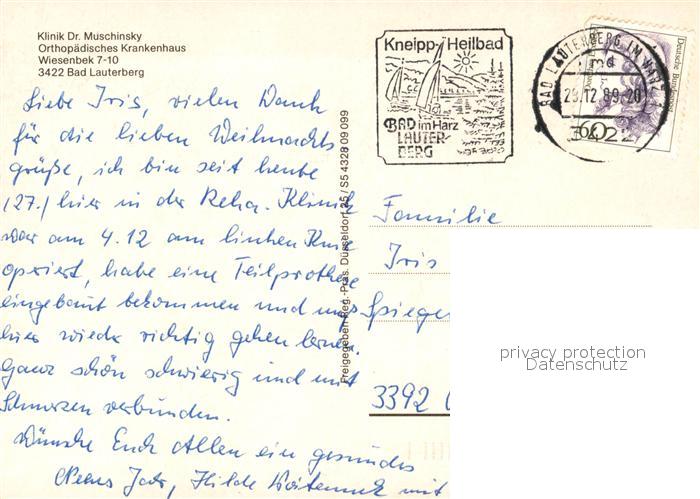 Klinik Dr. Muschinsky
Orthopädisches Krankenhaus
Wiesenbek 7-10
3422 Bad Lauterberg
Liebe Iris, vielen Dank
für die lieben Weihnachts
grüße, ich bin seit heute
(27.) hier in der Reha. Klinik
war am 4.12 am linken Knie
operiert, habe eine Teilprothese
eingebaut bekommen und muß
hier wieder richtig gehen lernen.
Ganz schön schwierig und mit
Schmerzen verbunden.
Wünsche Euch Allen ein gesundes
Neues Jahr, Hilde mit
Freigegeben Reg.-Präs. Düsseldorf 25 / S5 4328 09 099
Kneipp-Heilbad
BAD im Harz
LAUTER-
BERG
BAD LAUTERBERG IM HARZ 1
29.12.89.-20
3422
Deutsche Bundespost
60
Familie
Iris
3392
privacy protection
Datenschutz